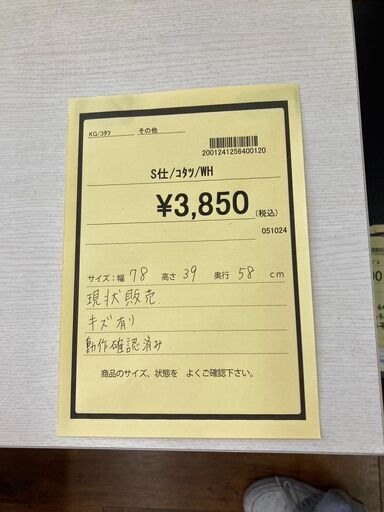 KG/ｺﾀﾂ その他
2001241256400120
S仕/ｺﾀﾂ/WH
¥3,850 (税込)
051024
サイズ:幅 78 高さ 39 奥行 58 cm
現状販売
キズ有り
動作確認済み
商品のサイズ、状態を よくご確認下さい。